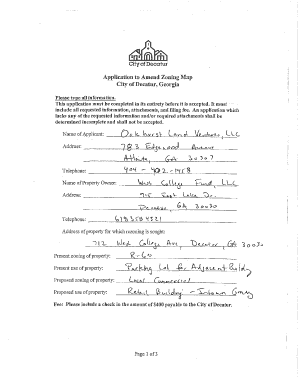 City of Decatur
Application to Amend Zoning Map
City of Decatur, Georgia
Please type all information.
This application must be completed in its entirety before it is accepted. It must
include all requested information, attachments, and filing fee. An application which
lacks any of the requested information and/or required attachments shall be
determined incomplete and shall not be accepted.
Name of Applicant: Oakhurst Land Ventures, LLC
Address: 783 Edgewood Avenue
Atlanta, GA 30307
Telephone: 404-492-1458
Name of Property Owner: West College Fund, LLC
Address: 715 East Lake Dr.
Decatur, GA 30030
Telephone:
Address of property for which rezoning is sought:
712 West College Ave, Decatur GA 30030
Present zoning of property: R-60
Present use of property: Parking Lot for Adjacent Buildg
Proposed zoning of property: Local Commercial
Proposed use of property: Retail Building -
Fee: Please include a check in the amount of $400 payable to the City of Decatur.
Page 1 of 3